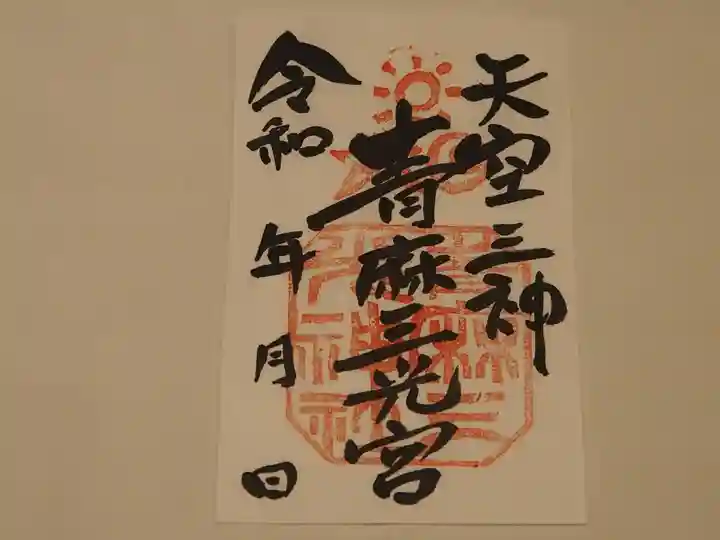 天空三神
青麻三光宮
令和 年 月 日